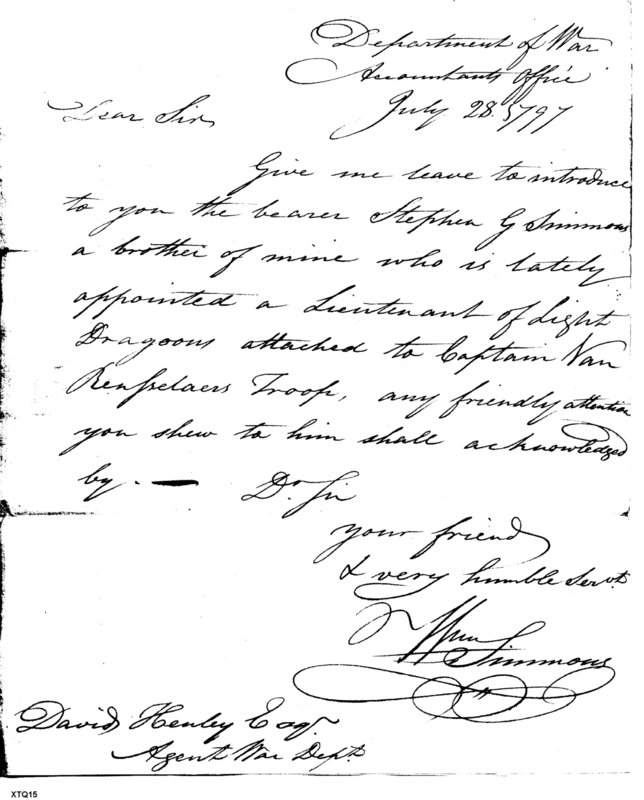 Department of War
Accountants Office
July 28. 1797
Dear Sir,
Give me leave to introduce
to you the bearer Stephen G Simmons
a brother of mine who is lately
appointed a Lieutenant of Light
Dragoons attached to Captain Van
Renſselaers Troop, any friendly attention
you shew to him shall acknowledged
by. — Dr. Sir
your friend
& very humble Servt.
Wm Simmons
David Henley Esqr.
Agent War Dept.
XTQ15